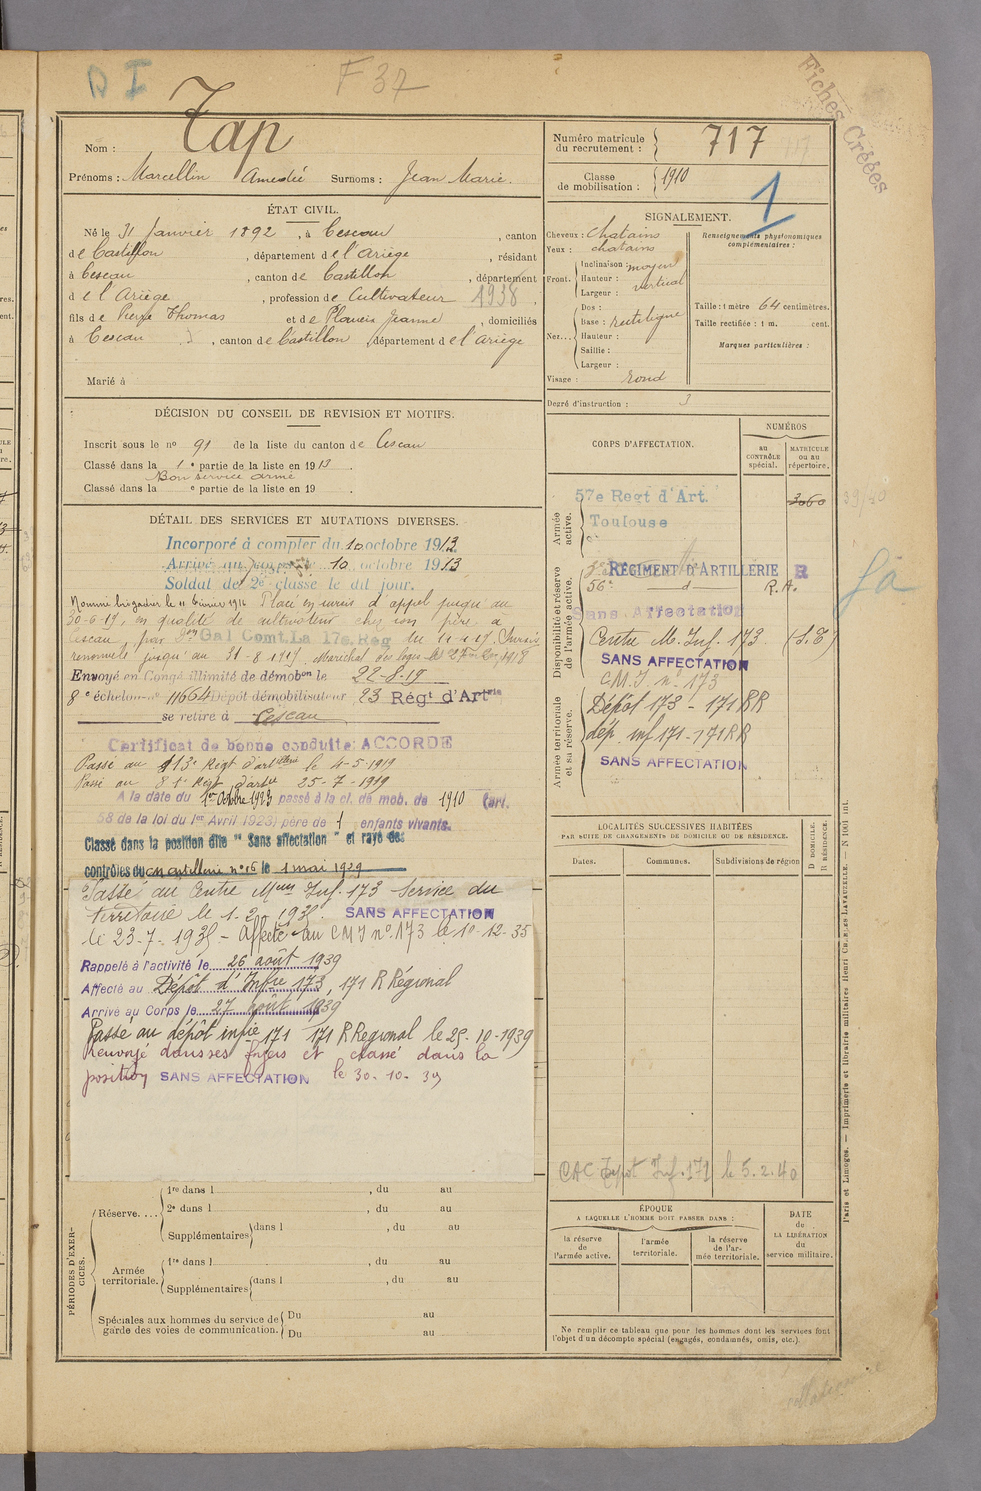 D I
F 37
Fiches Créées
Nom : Tap
Prénoms : Marcellin Amédée Surnoms : Jean Marie.
Numéro matricule du recrutement : 717
Classe de mobilisation : 1910
1
ÉTAT CIVIL.
Né le 31 Janvier 1892, à Cescau, canton
de Castillon, département de l'Ariège, résidant
à Cescau, canton de Castillon, département
de l'Ariège, profession de Cultivateur 1938.
fils de Pierre Thomas et de Jeanne, domiciliés
à Cescau, canton de Castillon, département de l'Ariège
Marié à
SIGNALEMENT.
Cheveux : chatains
Yeux : chatains
Front. Inclinaison : moyen
Hauteur : vertical
Largeur :
Nez... Dos :
Base : rectiligne
Hauteur :
Saillie :
Largeur :
Visage : rond
Renseignements physionomiques complémentaires :
Taille : 1 mètre 64 centimètres.
Taille rectifiée : 1 m. cent.
Marques particulières :
Degré d'instruction : 3
DÉCISION DU CONSEIL DE REVISION ET MOTIFS.
Inscrit sous le n° 91 de la liste du canton de Cescau
Classé dans la 1e partie de la liste en 1913.
Bon service armé
Classé dans la e partie de la liste en 19 .
DÉTAIL DES SERVICES ET MUTATIONS DIVERSES.
Incorporé à compter du 10 octobre 1913.
Arrivé au corps le 10 octobre 1913
Soldat de 2e classe le dit jour.
Nommé brigadier le 11 février 1916 Placé en sursis d'appel jusqu'au
30-6-19, en qualité de cultivateur chez son père à
Cescau, par Gal Comt. La 17e Reg du 11-1-19. Sursis
renouvelé jusqu'au 31-8-1919. Maréchal des logis le 1918
Envoyé en Congé illimité de démobon le 22-8-19
8e échelon n° 11664 Dépôt démobilisateur 23 Régt d'Artrie
se retire à Cescau
Certificat de bonne conduite ACCORDÉ
Passé au 113e Régt d'artillerie le 4-5-1919
Passé au 81e Régt d'artie 25-7-1919
A la date du 1er Octobre 1923 passé à la cl. de mob. de 1910 (art.
58 de la loi du 1er Avril 1923) père de 1 enfants vivants.
Classé dans la position dite "Sans affectation" et rayé des
contrôles du cm artillerie n° 16 le 1 mai 1929
Passé au Centre Mum Inf. 173 Service du
territoire le 1-2-1935. SANS AFFECTATION
le 23-7-1935 - Affecté au CMI n° 173 le 10-12-35
Rappelé à l'activité le 26 août 1939
Affecté au Dépôt d'Infie 173, 171 R Régional
Arrivé au Corps le 27 août 1939
Passé au dépôt infie 171 171 R Regional le 25-10-1939
Renvoyé dans ses foyers et classé dans la
position SANS AFFECTATION le 30-10-39
CORPS D'AFFECTATION.
NUMÉROS
au CONTRÔLE spécial.
MATRICULE ou au répertoire.
Armée active.
57e Regt d'Art.
Toulouse
3060
Disponibilité et réserve de l'armée active.
RÉGIMENT D'ARTILLERIE R
56e d R.A.
Sans Affectation
Centre M. Inf. 173 (S.T.)
SANS AFFECTATION
CMI n° 173
Armée territoriale et sa réserve.
Dépôt 173 - 171 RR
dép. inf 171 - 171 RR
SANS AFFECTATION
LOCALITÉS SUCCESSIVES HABITÉES
PAR SUITE DE CHANGEMENTS DE DOMICILE OU DE RÉSIDENCE.
Dates.
Communes.
Subdivisions de région
D DOMICILE.
R RÉSIDENCE.
CAC Depot Inf. 171 le 5.2.40
PÉRIODES D'EXERCICES.
Réserve....
1re dans l , du au
2e dans l , du au
Supplémentaires dans l , du au
Armée territoriale.
1re dans l , du au
Supplémentaires dans l , du au
Spéciales aux hommes du service de garde des voies de communication.
Du au
Du au
ÉPOQUE
A LAQUELLE L'HOMME DOIT PASSER DANS :
la réserve de l'armée active.
l'armée territoriale.
la réserve de l'armée territoriale.
DATE de LA LIBÉRATION du service militaire.
Ne remplir ce tableau que pour les hommes dont les services font
l'objet d'un décompte spécial (engagés, condamnés, omis, etc.).
Paris et Limoges. — Imprimerie et librairie militaires Henri CHARLES-LAVAUZELLE. — N 1001 int.